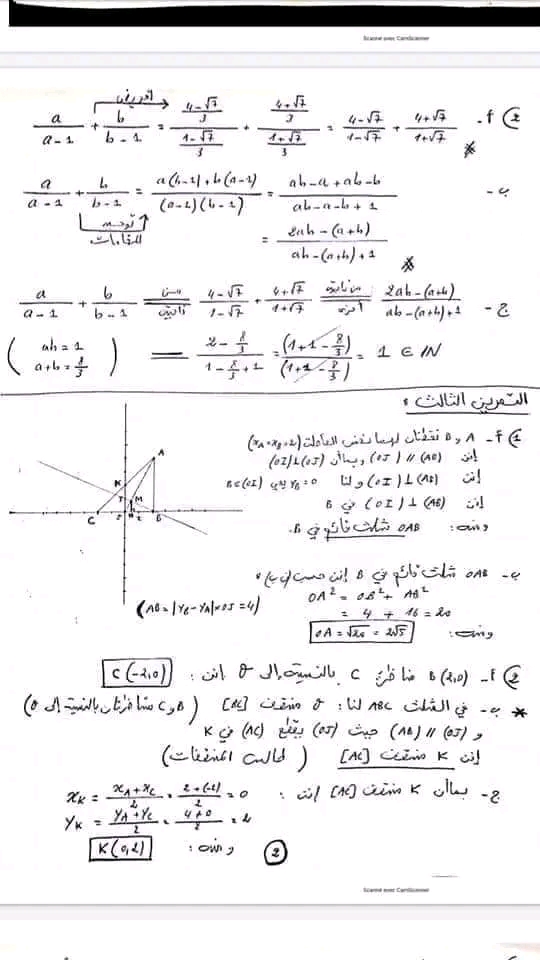 Scanné avec CamScanner
2) أ- a/(a-1) + b/(b-1) = ((4-√7)/3)/((1-√7)/3) + ((4+√7)/3)/((1+√7)/3) = (4-√7)/(1-√7) + (4+√7)/(1+√7)
ب- a/(a-1) + b/(b-1) = (a(b-1)+b(a-1))/((a-1)(b-1)) = (ab-a+ab-b)/(ab-a-b+1)
توحيد المقامات
= (2ab-(a+b))/(ab-(a+b)+1)
ج- a/(a-1) + b/(b-1) = (4-√7)/(1-√7) + (4+√7)/(1+√7) = (2ab-(a+b))/(ab-(a+b)+1)
(ab = 1
a+b = 8/3) = (2-8/3)/(1-8/3+1) = (1+1-8/3)/(1+1-8/3) = 1 ∈ IN
التمرين الثالث :
1) أ- A و B نقطتان لهما نفس الفاصلة (xA=xB=2)
إذن (AB) // (OJ) وبما أن (OI)⊥(OJ)
إذن (OI)⊥(AB) ولنا yB=0 يعني B∈(OI)
إذن (AB)⊥(OI) في B
ومنه : OAB مثلث قائم في B.
ب- OAB مثلث قائم في B إذن حسب
OA² = OB² + AB²
(AB=|yB-yA|×OJ=4)
= 4 + 16 = 20
ومنه : OA=√20=2√5
2) أ- B(2,0) مناظرة C بالنسبة إلى O إذن : C(-2,0)
* ب- في المثلث ABC لنا : O منتصف [BC] (B و C متناظرتان بالنسبة إلى O)
و (OJ) // (AB) حيث (OJ) يقطع (AC) في K
إذن K منتصف [AC] (طالس المنتصفات)
ج- بما أن K منتصف [AC] إذن : xK = (xA+xC)/2 = (2+(-2))/2 = 0
yK = (yA+yC)/2 = (4+0)/2 = 2
ومنه : K(0,2)
2
Scanné avec CamScanner